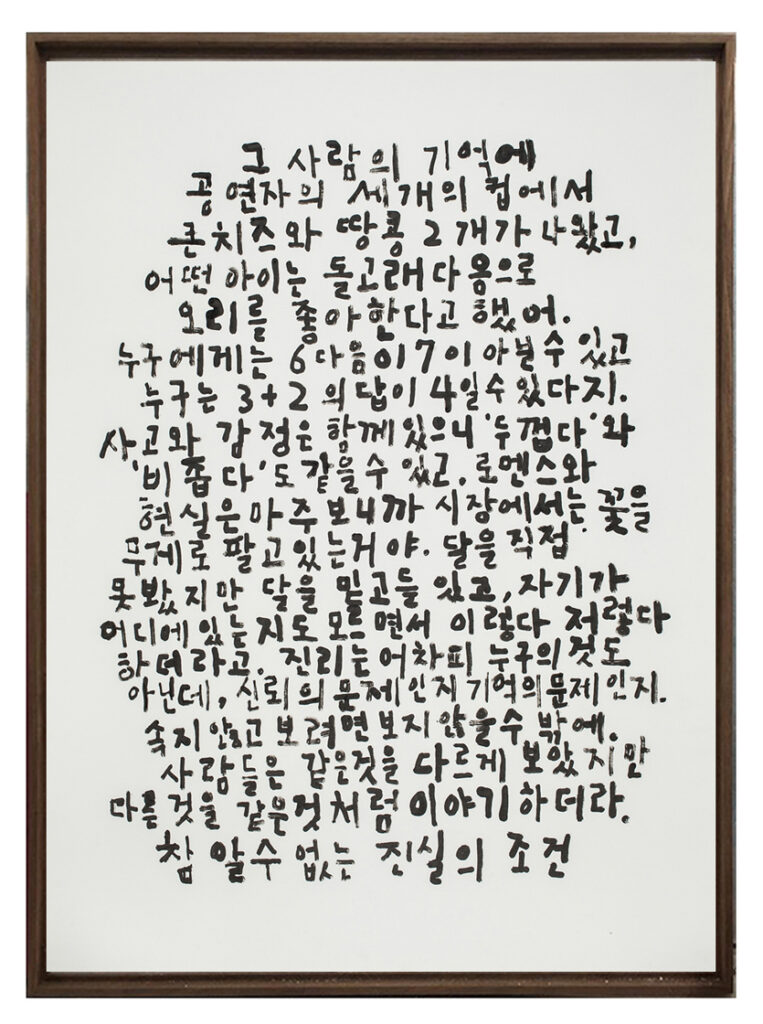 그 사람의 기억에
공연자의 세개의 컵에서
큰치즈와 땅콩 2개가 나왔고,
어떤 아이는 돌고래다음으로
오리를 좋아한다고 했어.
누구에게는 6다음이 7이 아닐수 있고
누구는 3+2의 답이 4일수 있다지.
사고와 감정은 함께있으니 '두껍다'와
'비좁다'도 같을수 있고, 로멘스와
현실은 마주보니까 시장에서는 꽃을
무게로 팔고있는거야. 달을 직접
못봤지만 달을 믿고들 있고, 자기가
어디에있는지도 모르면서 이렇다 저렇다
하더라고. 진리는어차피 누구의것도
아닌데, 신뢰의문제인지 기억의문제인지.
속지 않고 보려면보지않을수 밖에.
사람들은 같은것을 다르게 보았지만
다른 것을 같은것처럼 이야기하더라.
참 알수 없는 진실의 조건